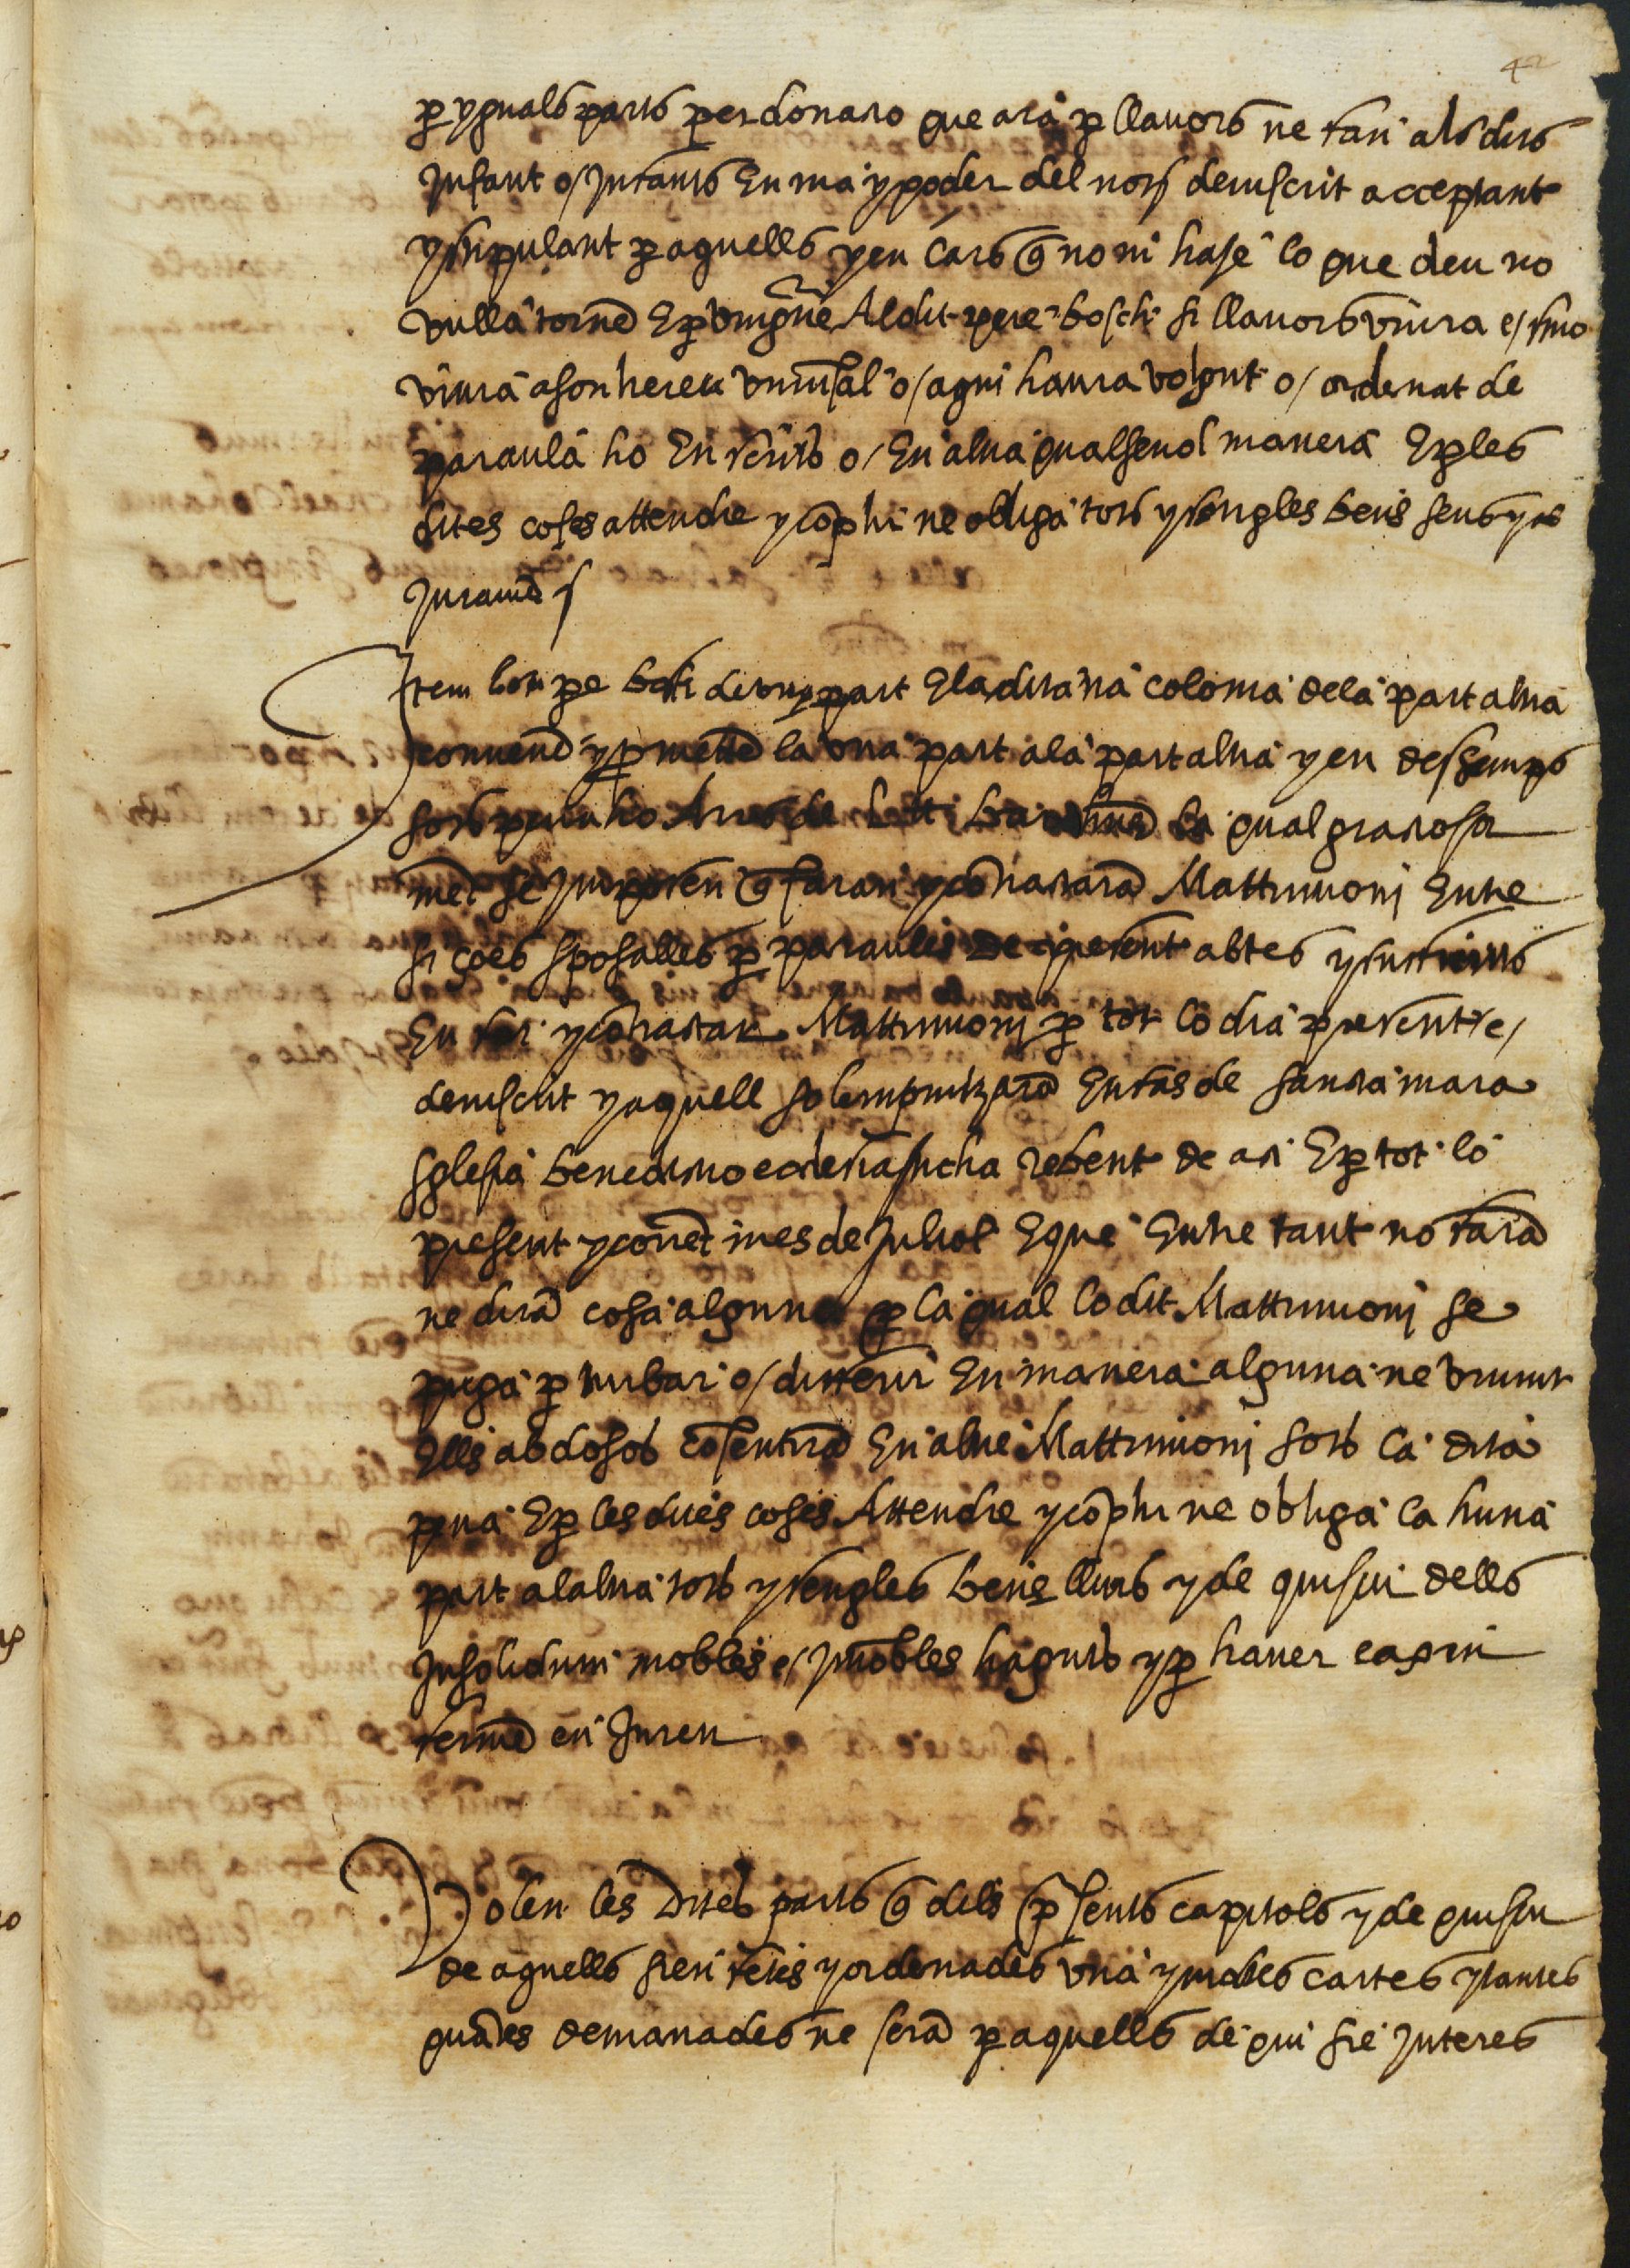 42
p yguals parts per donatio que ara p llavors ne fan als dits
Infant o/ Infants En ma y poder del nots devuscrit acceptant
y stipulant p aquells y en cars q no ni hage lo que deu no
vulla torne E p vingue Al dit pere bosch si llavors viura e/ sino
viura a son hereu universal o/ a qui haura volgut o/ ordenat de
paraula ho En scrits o/ En altra qualsevol manera E p les
dites coses attendre y coplir ne obliga tots y sengles bens seus y ab
Jurament
Item lo dit pe bosch de una part E la dita na coloma de la part altra
convene y prometen la una part a la part altra y en dessemps
sots pena ho Arres de la qual gratiosa
met se Imposen q faran y cotractara Mattrimoni Entre
si ços sposalles p paraules de present abtes y sufficients
En fer y cotractar Mattrimoni p tot lo dia present e/
devuscrit y aquell solempnitzara En fas de sancta mara
sglesia benedictio ecclesiasticha rebent de asi E p tot lo
present y corret mes de Juliol E que Entre tant no fara
ne dira cosa alguna p la qual lo dit Mattrimoni se
puga p turbar o/ differir En manera alguna ne vivint
Ells abdosos cosentira En altre Mattrimoni sots la dita
pena E p les dites coses Attendre y coplir ne obliga la huna
part a la altra tots y sengles bens llurs y de quiscu dells
Insolidum mobles e/ Imobles haguts y p haver
en Juren
Volen les Dites parts q dels p sents capitols y de quiscu
de aquells sien fetes y ordenades una y moltes cartes y tantes
quates demanades ne sera p aquells de qui sie Interes